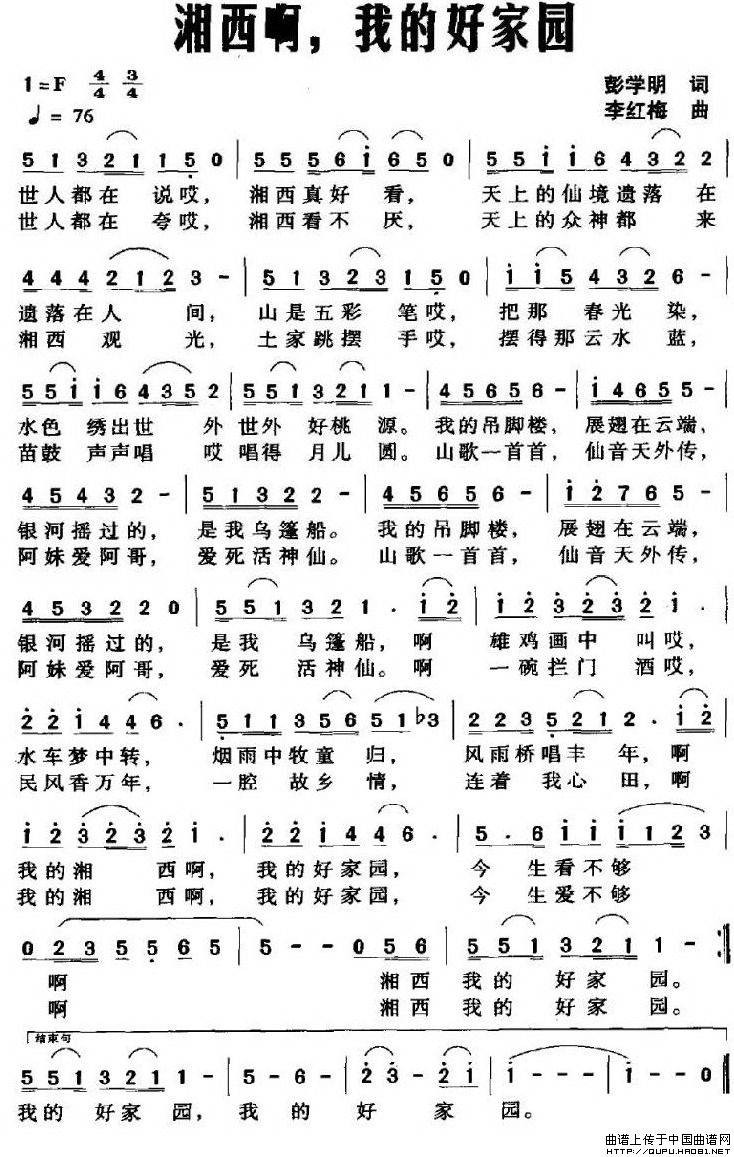 湘西啊，我的好家园
1=F 4/4 3/4
彭学明 词
♩= 76
李红梅 曲
5 1 3 2 1 1 5 0 | 5 5 5 6 i 6 5 0 | 5 5 i i 6 4 3 2 2
世人都在 说哎， 湘西真好 看， 天上的仙境遗落 在
世人都在 夸哎， 湘西看不 厌， 天上的众神都 来
4 4 4 4 2 1 2 3 - | 5 1 3 2 3 1 5 0 | i i 5 4 3 2 6 -
遗落在人 间； 山是五彩 笔哎， 把那 春光染，
湘西 观 光， 土家跳摆 手哎， 摆得那云水蓝，
5 5 i i 6 4 3 5 2 | 5 5 1 3 2 1 1 - | 4 5 6 5 6 - | i 4 6 5 5 -
水色 绣出世 外 世外 好桃 源。 我的吊脚楼， 展翅在云端，
苗鼓 声声唱 哎 唱得 月儿 圆。 山歌一首首， 仙音天外传，
4 5 4 3 2 - | 5 1 3 2 2 - | 4 5 6 5 6 - | i 2 7 6 5 -
银河摇过的， 是我乌篷船。 我的吊脚楼， 展翅在云端，
阿妹爱阿哥， 爱死活神仙。 山歌一首首， 仙音天外传，
4 5 3 2 2 0 | 5 5 1 3 2 1 . i 2 | i 2 3 2 3 2 i .
银河摇过的， 是我 乌篷船， 啊 雄鸡画中 叫哎，
阿妹爱阿哥， 爱死 活神仙。 啊 一碗拦门 酒哎，
2 2 i 4 4 6 . | 5 1 1 3 5 6 5 1 ♭3 | 2 2 3 5 2 1 2 . i 2
水车梦中转， 烟雨中牧童 归， 风雨桥唱丰 年， 啊
民风香万年， 一腔 故乡 情， 连着 我心 田， 啊
i 2 3 2 3 2 i . | 2 2 i 4 4 6 . | 5 . 6 i i i 1 2 3
我的湘 西啊， 我的好家园， 今 生看不够
我的湘 西啊， 我的好家园， 今 生爱不够
0 2 3 5 5 6 5 | 5 - - 0 5 6 | 5 5 1 3 2 1 1 - :‖
啊 湘西 我的 好家 园。
啊 湘西 我的 好家 园。
结束句
5 5 1 3 2 1 1 - | 5 - 6 - | 2 3 - 2 i | i - - - | i - - 0 ‖
我的 好家 园， 我 的 好 家 园。
曲谱上传于中国曲谱网
HTTP://QUPU.HAO81.NET